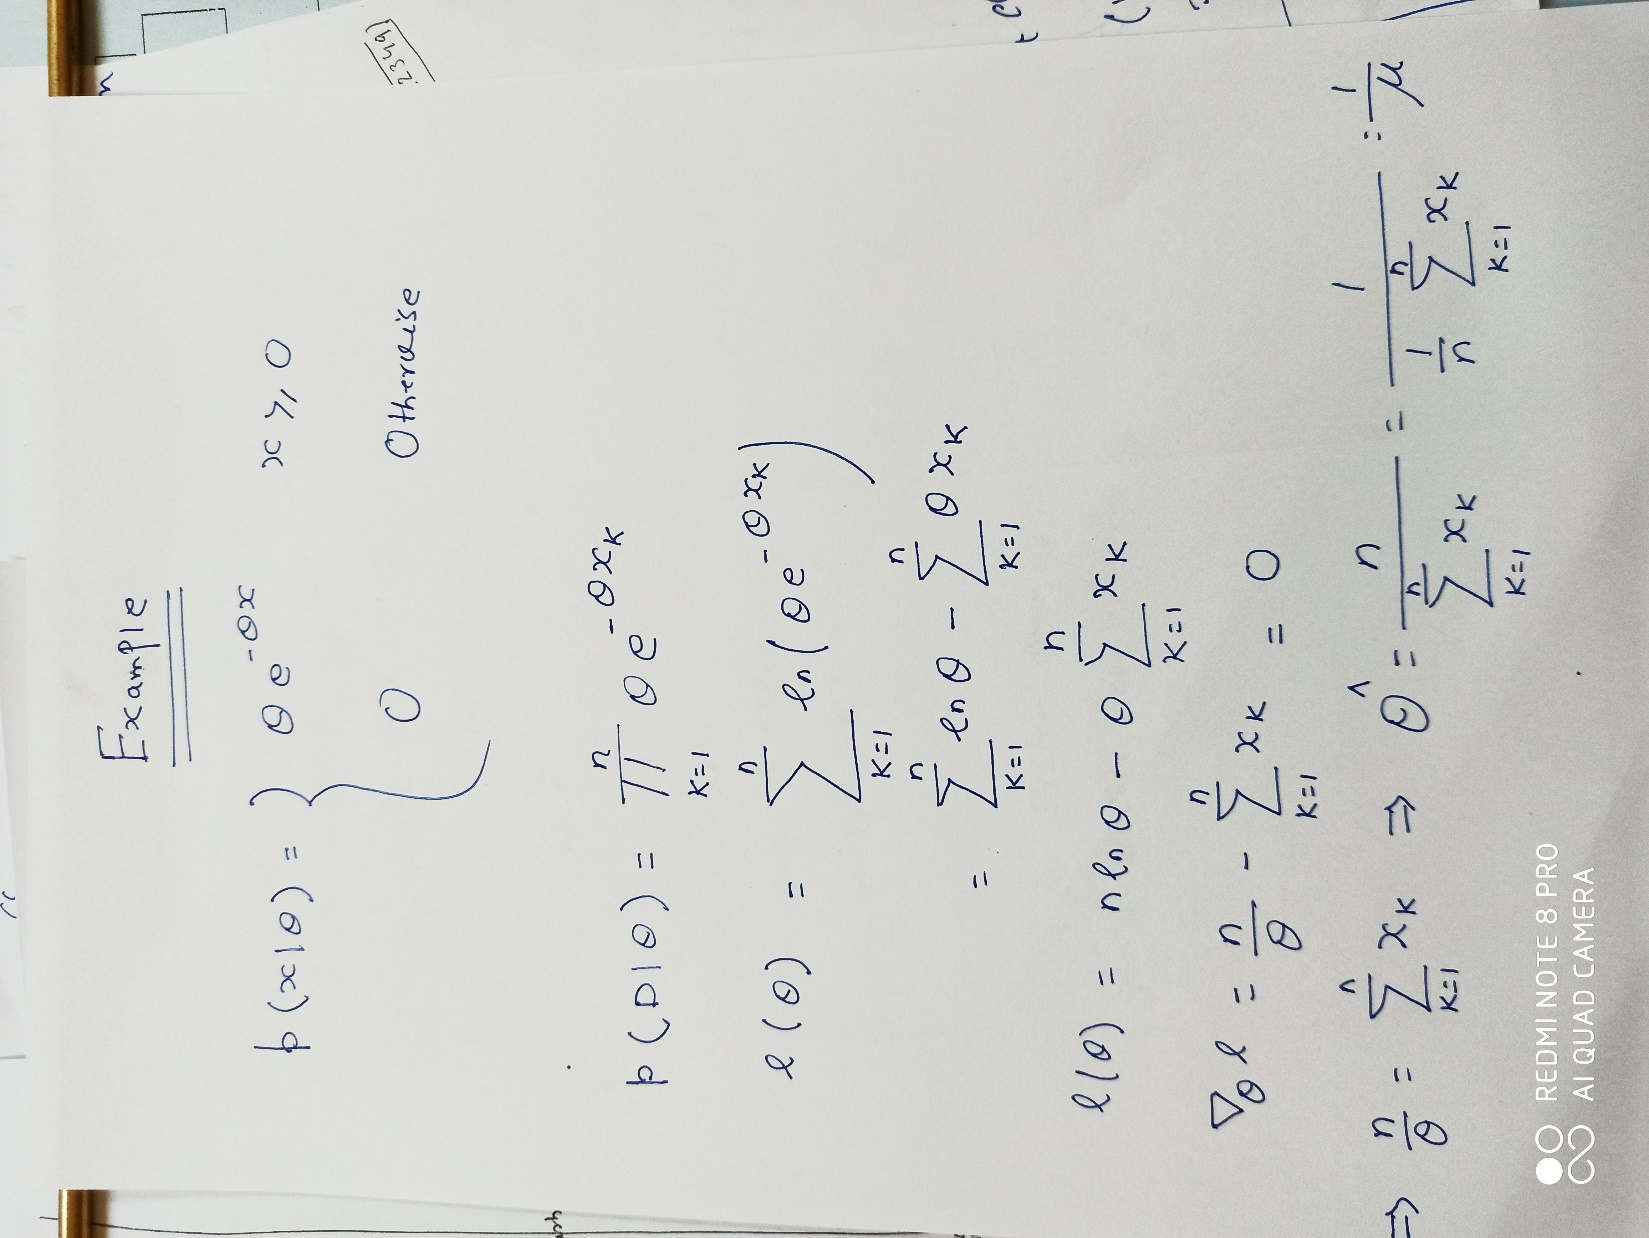 Example
p(x|θ) = { θ e^{-θx}   x ≥ 0
0   Otherwise
p(D|θ) = ∏_{k=1}^{n} θ e^{-θ x_k}
l(θ) = ∑_{k=1}^{n} ln(θ e^{-θ x_k})
= ∑_{k=1}^{n} ln θ - ∑_{k=1}^{n} θ x_k
l(θ) = n ln θ - θ ∑_{k=1}^{n} x_k
∇_θ l = n/θ - ∑_{k=1}^{n} x_k = 0
⇒ n/θ = ∑_{k=1}^{n} x_k ⇒ θ̂ = n / ∑_{k=1}^{n} x_k = 1 / (1/n ∑_{k=1}^{n} x_k) = 1/μ
2349
REDMI NOTE 8 PRO
AI QUAD CAMERA